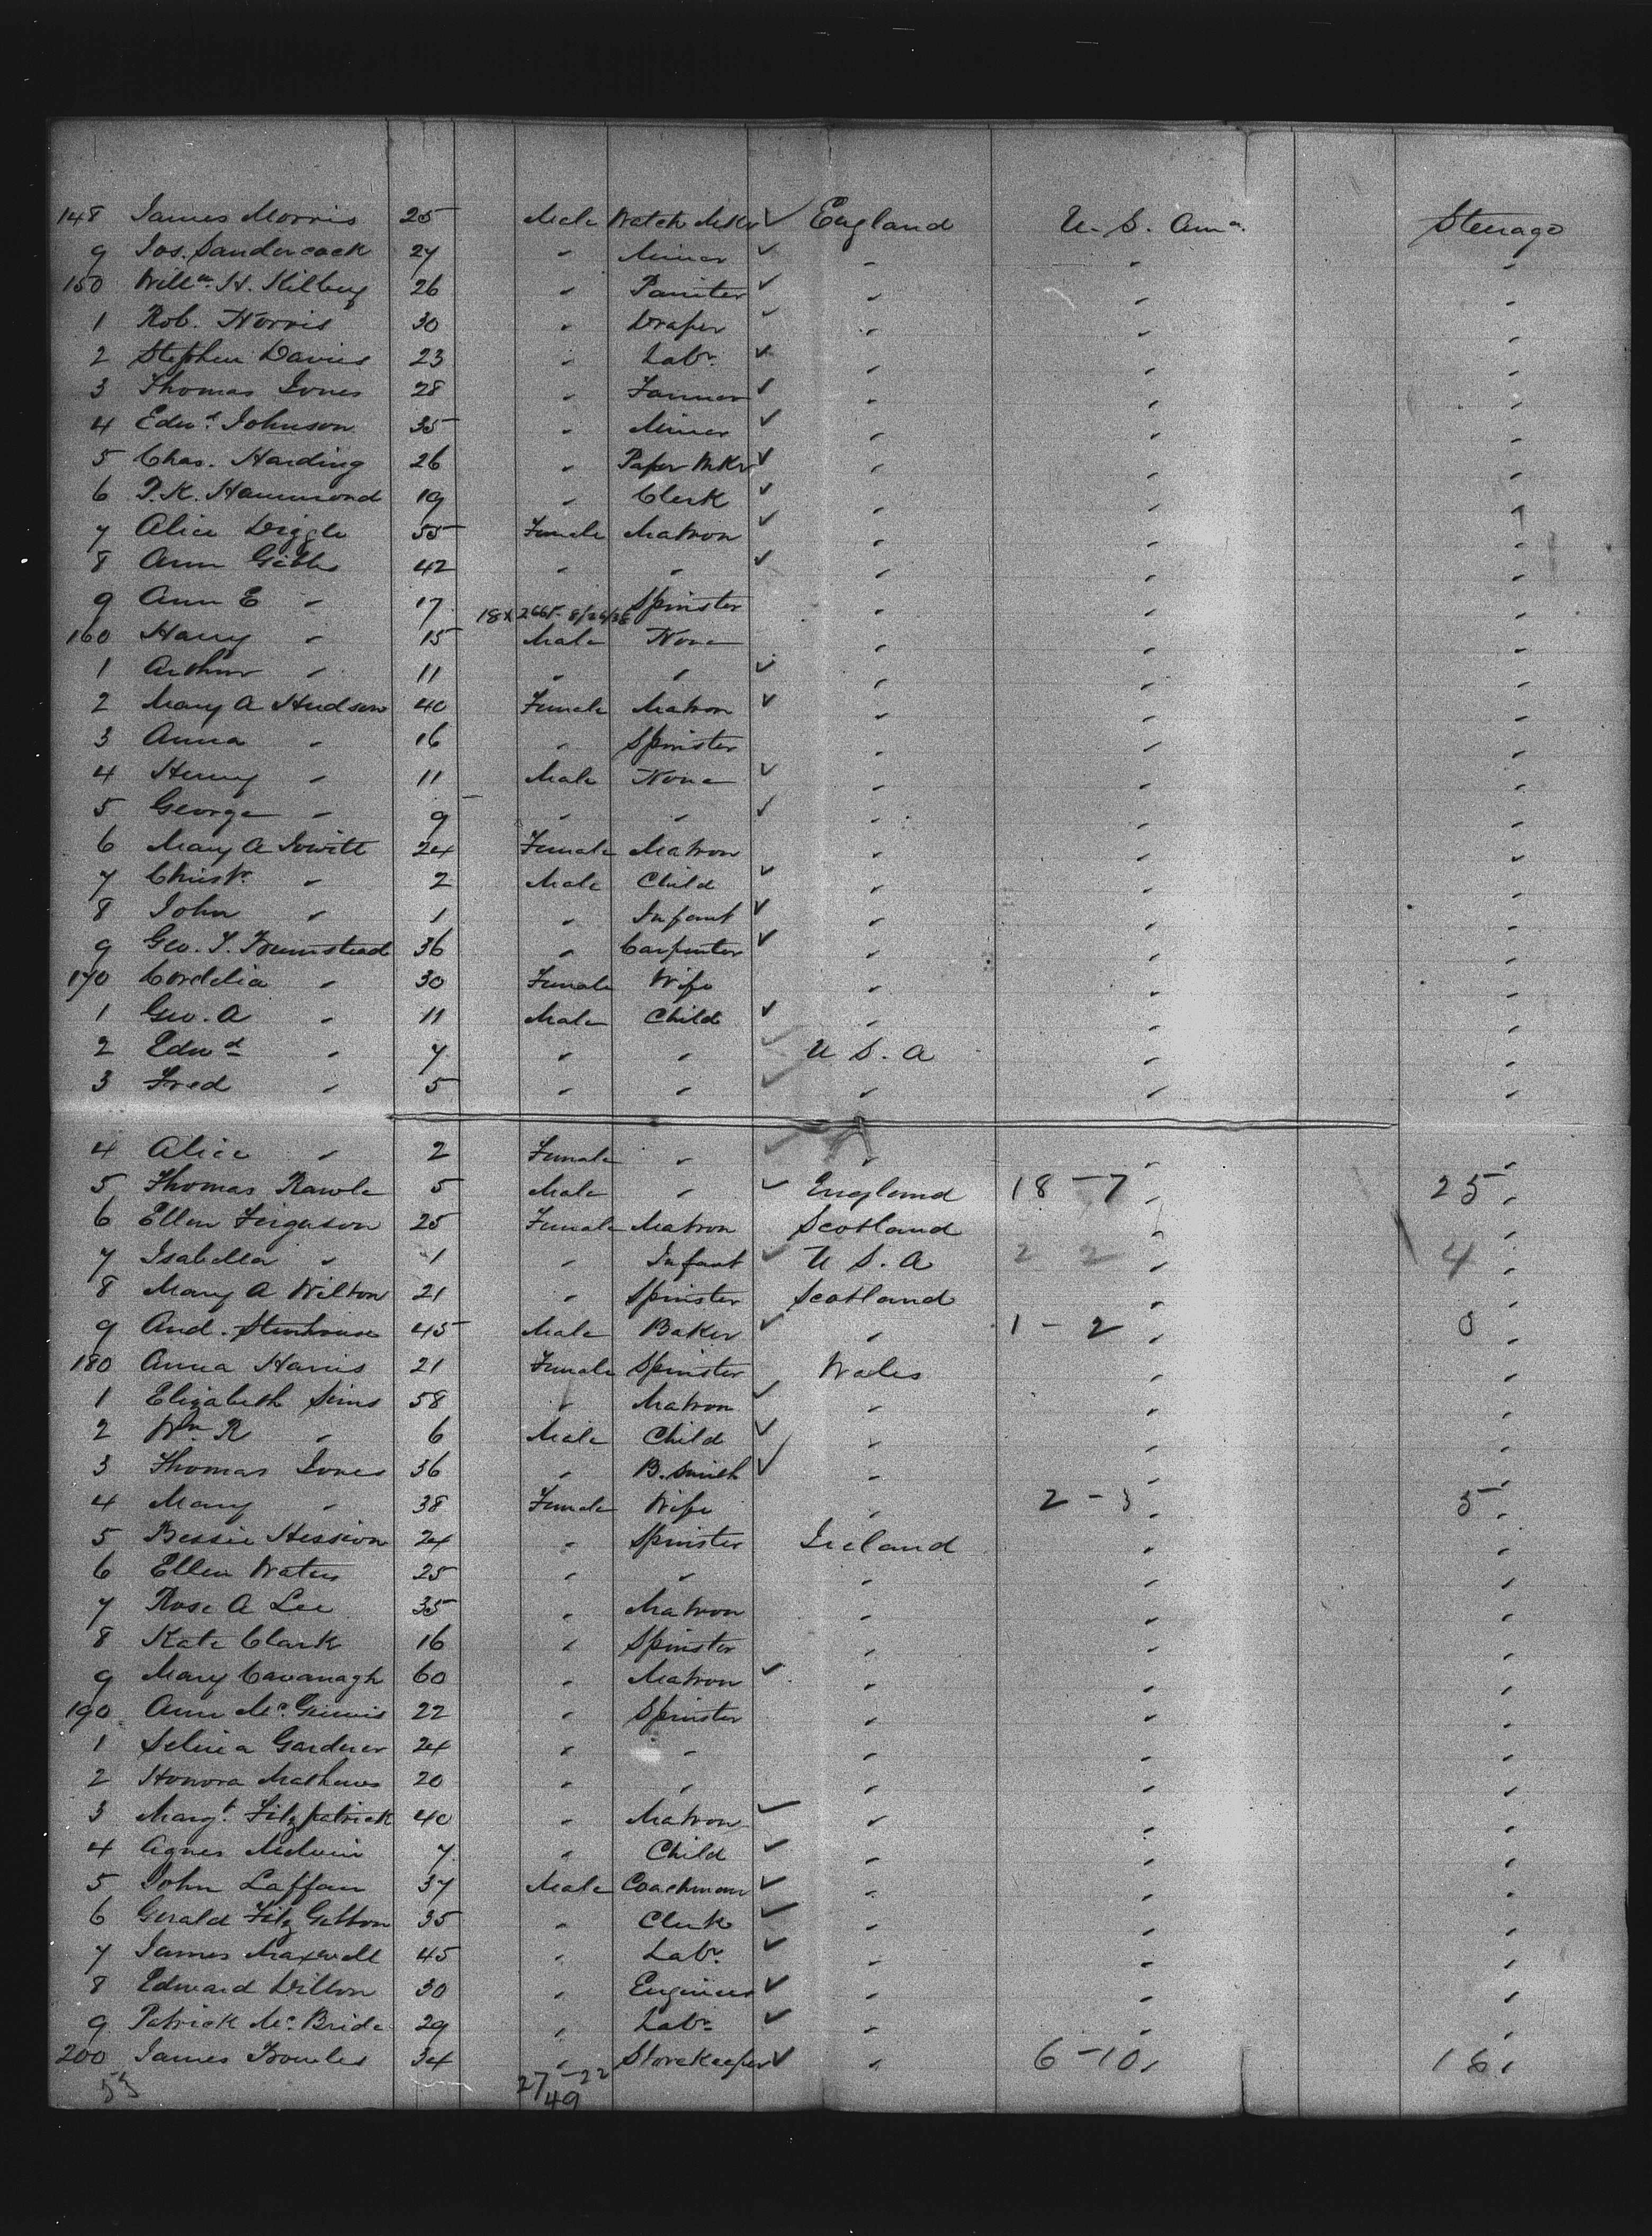 148 James Morris 25 Male Watch Mkr ✓ England U. S. Amᵃ. Steerage
9 Jos. Sandercock 27 " Miner ✓ " " "
150 Willᵐ. H. Kilbey 26 " Painter ✓ " " "
1 Rob. Norris 30 " Draper ✓ " " "
2 Stephen Davies 23 " Labʳ. ✓ " " "
3 Thomas Jones 28 " Farmer ✓ " " "
4 Edwᵈ. Johnson 35 " Miner ✓ " " "
5 Chas. Harding 26 " Paper Mkr ✓ " " "
6 T. K. Hammond 19 " Clerk ✓ " " "
7 Alice Diggle 55 Female Matron ✓ " " "
8 Ann Gibbs 42 " " ✓ " " "
9 Ann E " 17 18X2665- 8/26/38 Spinster " " "
160 Harry " 15 Male None " " "
1 Arthur " 11 " " ✓ " " "
2 Mary A Hudson 40 Female Matron ✓ " " "
3 Anna " 16 " Spinster " " "
4 Henry " 11 Male None ✓ " " "
5 George " 9 " " ✓ " " "
6 Mary A Jowitt 24 Female Matron " " "
7 Christʳ. " 2 Male Child ✓ " " "
8 John " 1 " Infant ✓ " " "
9 Geo. T. 36 " Carpenter ✓ " " "
170 Cordelia " 30 Female Wife " " "
1 Geo. A " 11 Male Child ✓ " " "
2 Edwᵈ " 7 " " ✓ U S. A " "
3 Fred " 5 " " ✓ " " "
4 Alice " 2 Female " ✓ " " "
5 Thomas Rawle 5 Male " ✓ England 18-7 " 25 "
6 Ellen Ferguson 25 Female Matron Scotland " "
7 Isabella " 1 " Infant ✓ U S. A 2 2 " 4 "
8 Mary A Wilton 21 " Spinster Scotland " "
9 And. Stenhouse 45 Male Baker ✓ " 1-2 " "
180 Anna Harris 21 Female Spinster Wales " "
1 Elizabeth Sims 58 " Matron ✓ " " "
2 Wᵐ R " 6 Male Child ✓ " " "
3 Thomas Jones 36 " B. Smith ✓ " " "
4 Mary " 38 Female Wife " 2-3 " 5 "
5 Bessie Hession 24 " Spinster Ireland " "
6 Ellen Waters 25 " " " " "
7 Rose A Lee 35 " Matron " " "
8 Kate Clark 16 " Spinster " " "
9 Mary Cavanagh 60 " Matron ✓ " " "
190 Ann McGinnis 22 " Spinster " " "
1 Selina Gardner 24 " " " " "
2 Honora Mathews 20 " " " " "
3 Margᵗ. Fitzpatrick 40 " Matron ✓ " " "
4 Agnes Melvin 7 " Child ✓ " " "
5 John Laffan 37 Male Coachman ✓ " " "
6 Gerald Fitz Gibbon 35 " Clerk ✓ " " "
7 James Maxwell 45 " Labʳ. ✓ " " "
8 Edward Dillon 30 " Engineer ✓ " " "
9 Patrick McBride 29 " Labʳ ✓ " " "
200 James 34 " Storekeeper ✓ " 6-10 " 16 "
53 27-22
49